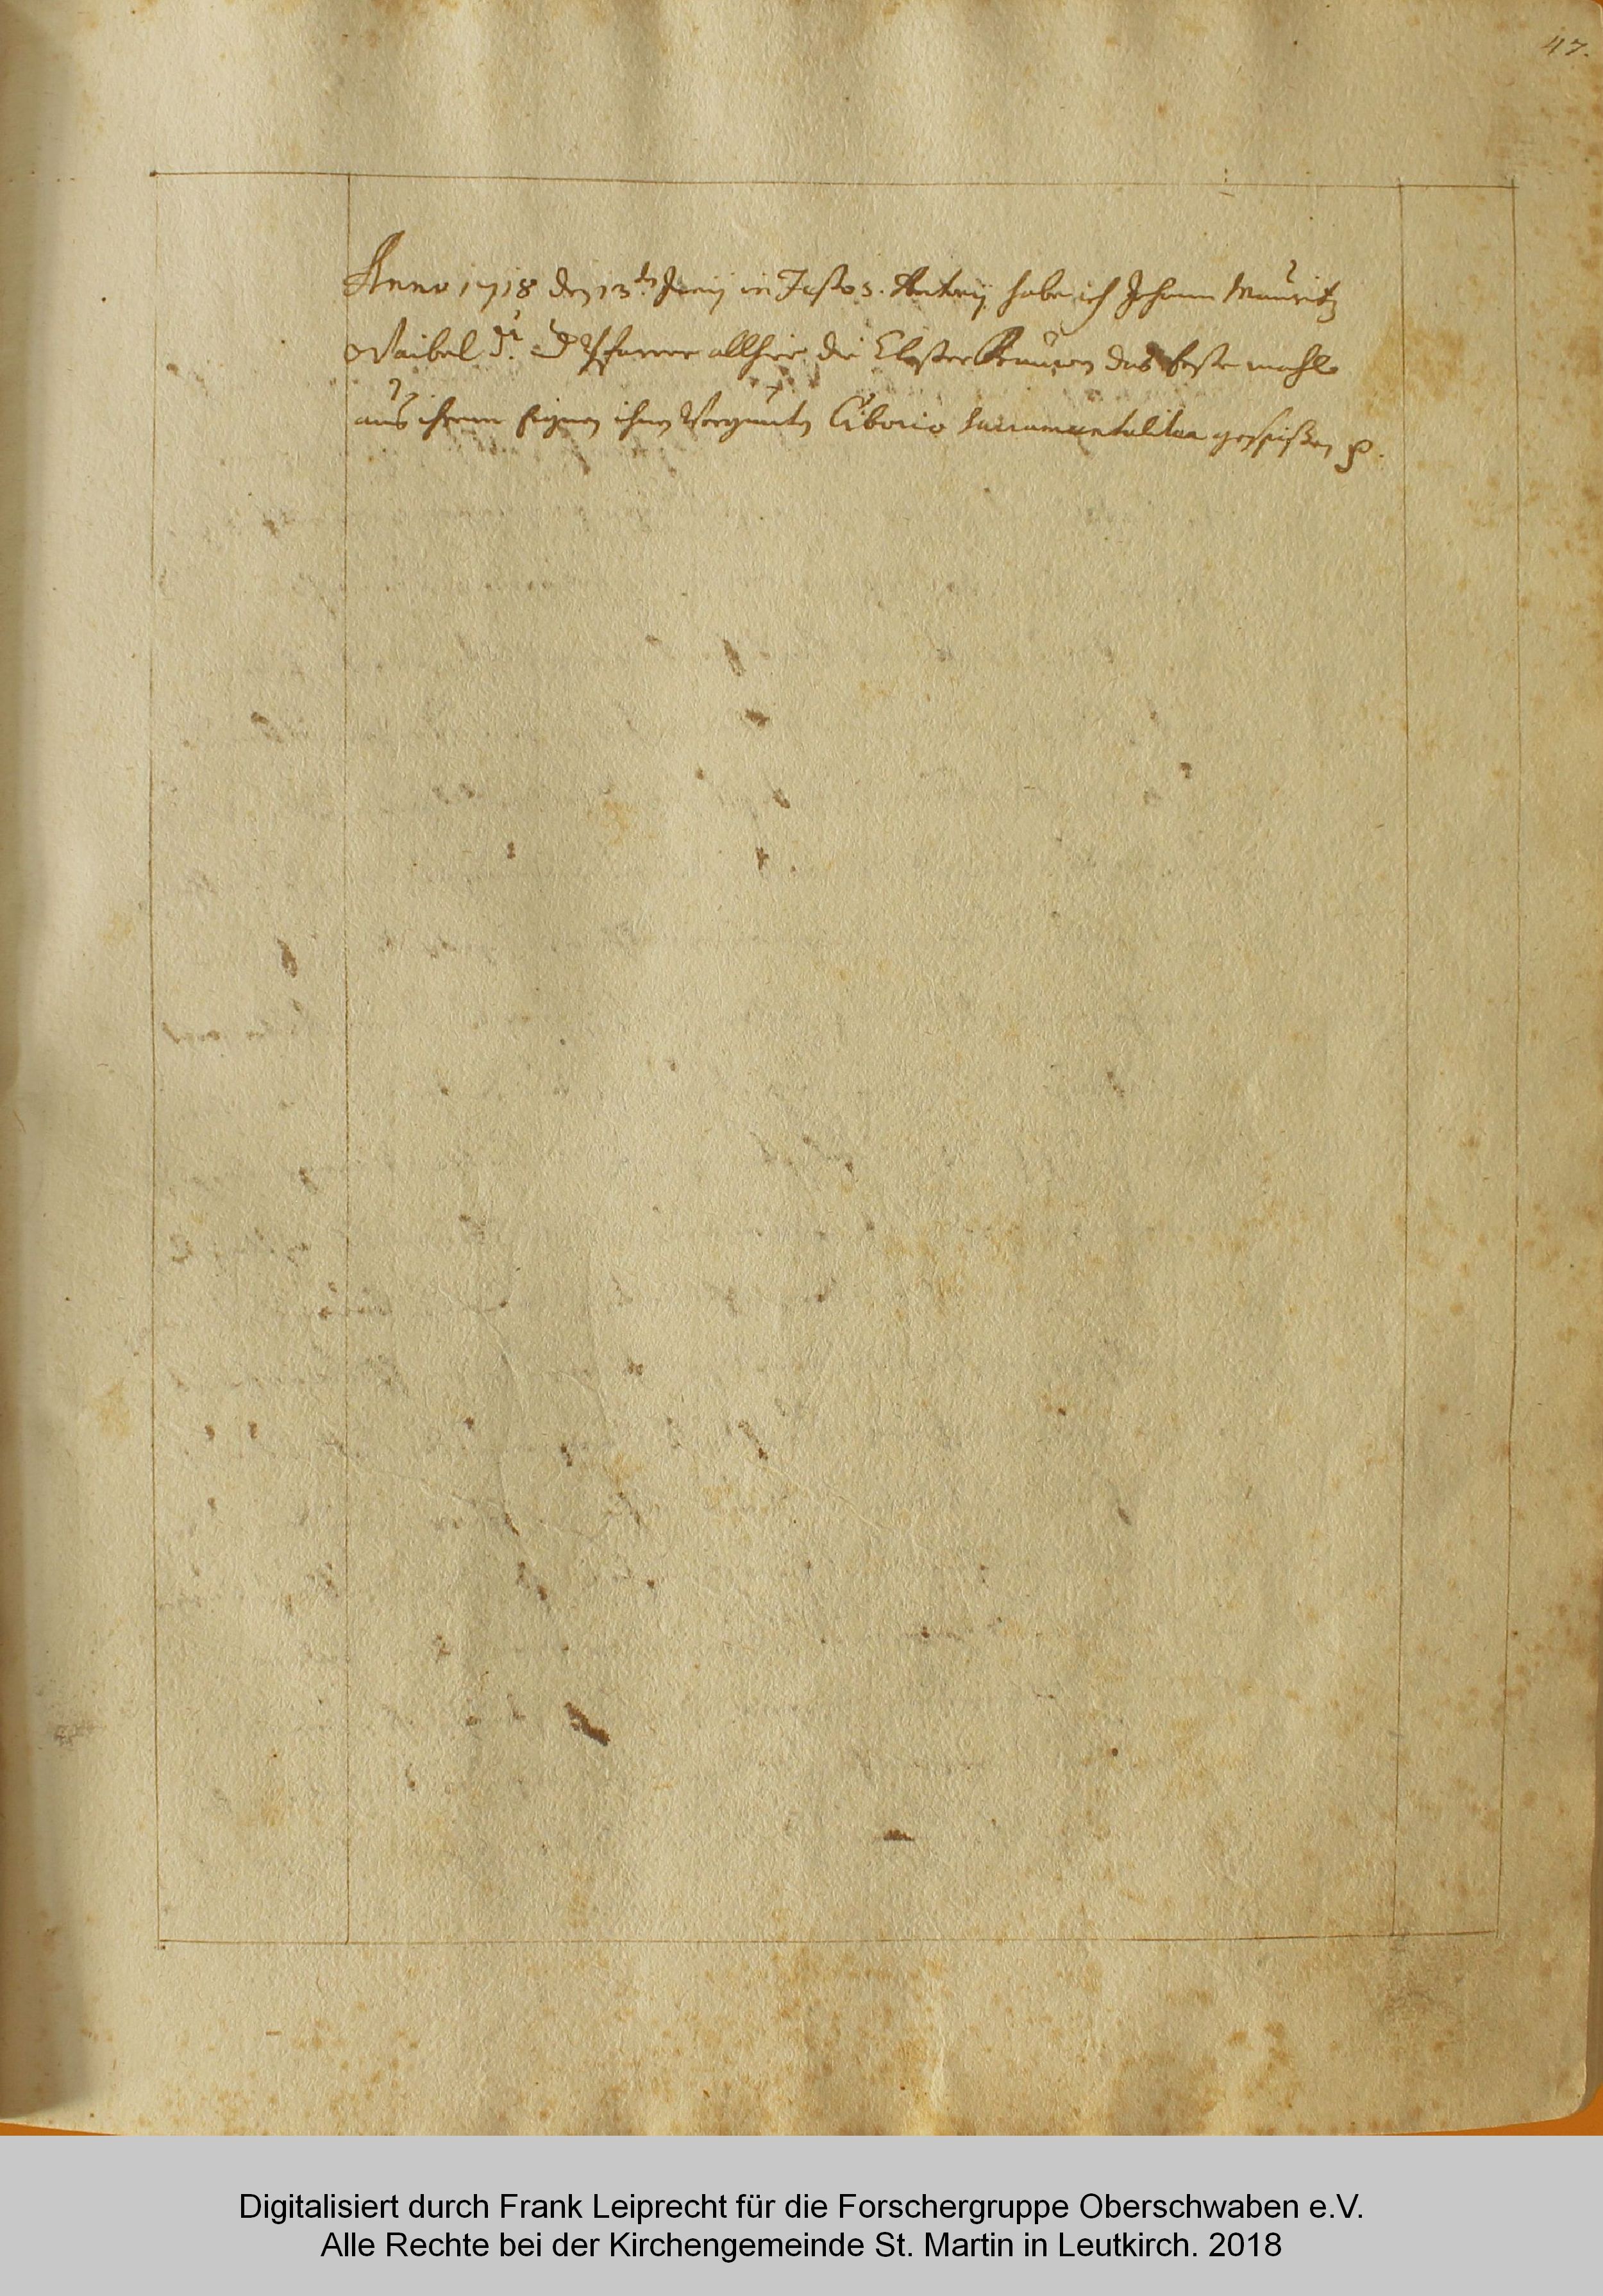 47.
Anno 1718 den 13ten Junij in Festo S. Antonij habe ich Johann Mauritz
Vaibel Pfarrer allhier die Closter Frauwen das erste mahl
aus ihrem eignen ihnen Vergunten Ciborio sacramentaliter gespißen
Digitalisiert durch Frank Leiprecht für die Forschergruppe Oberschwaben e.V.
Alle Rechte bei der Kirchengemeinde St. Martin in Leutkirch. 2018